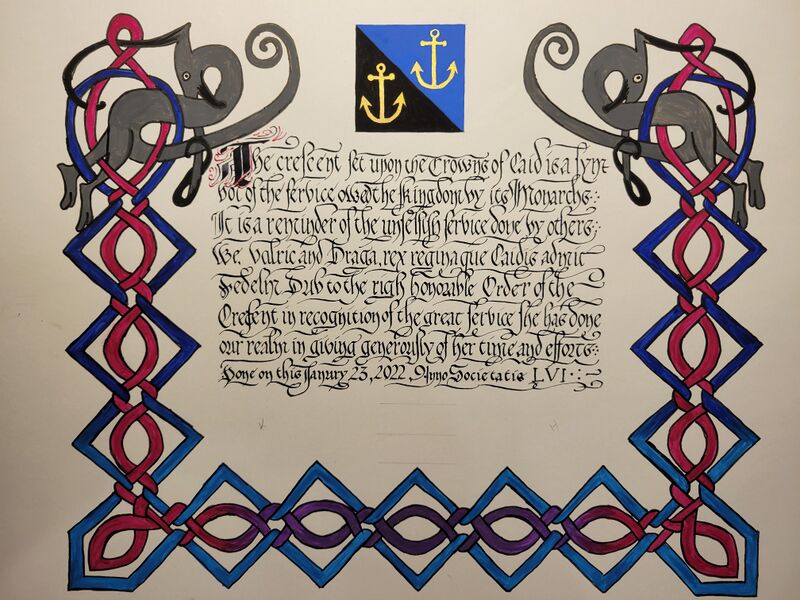 The crescent set upon the Crowns of Caid is a sym
bol of the service owed the Kingdom by its Monarchs
It is a reminder of the unselfish service done by others
We, Valric and Draga, rex reginaque Caidis admit
Fedelm Dub to the righ honorable Order of the
Cresent in recognition of the great service she has done
our realm in giving generously of her time and efforts
Done on this Janury 23, 2022, Anno Societatis LVI
K H